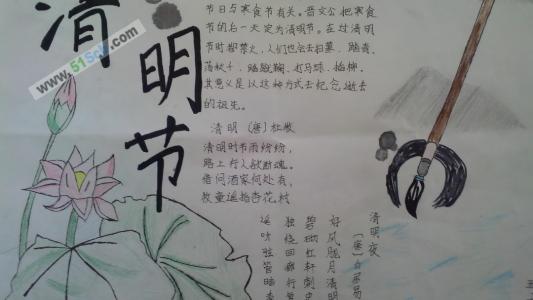 清明节
www.51Sole.com
节日与寒食节有关。晋文公把寒食
节的后一天定为清明节。在过清明
节时都禁火，人们也会去扫墓，踏青、
荡秋千、踏蹴鞠、打马球、插柳。
其意义是以这种方式去纪念逝去
的祖先。
清明（唐）杜牧
清明时节雨纷纷，
路上行人欲断魂。
借问酒家何处有，
牧童遥指杏花村
清明夜
（唐）白居易
好风胧月清明
碧砌红轩刺史
独绕回廊行
遥听弦管暗